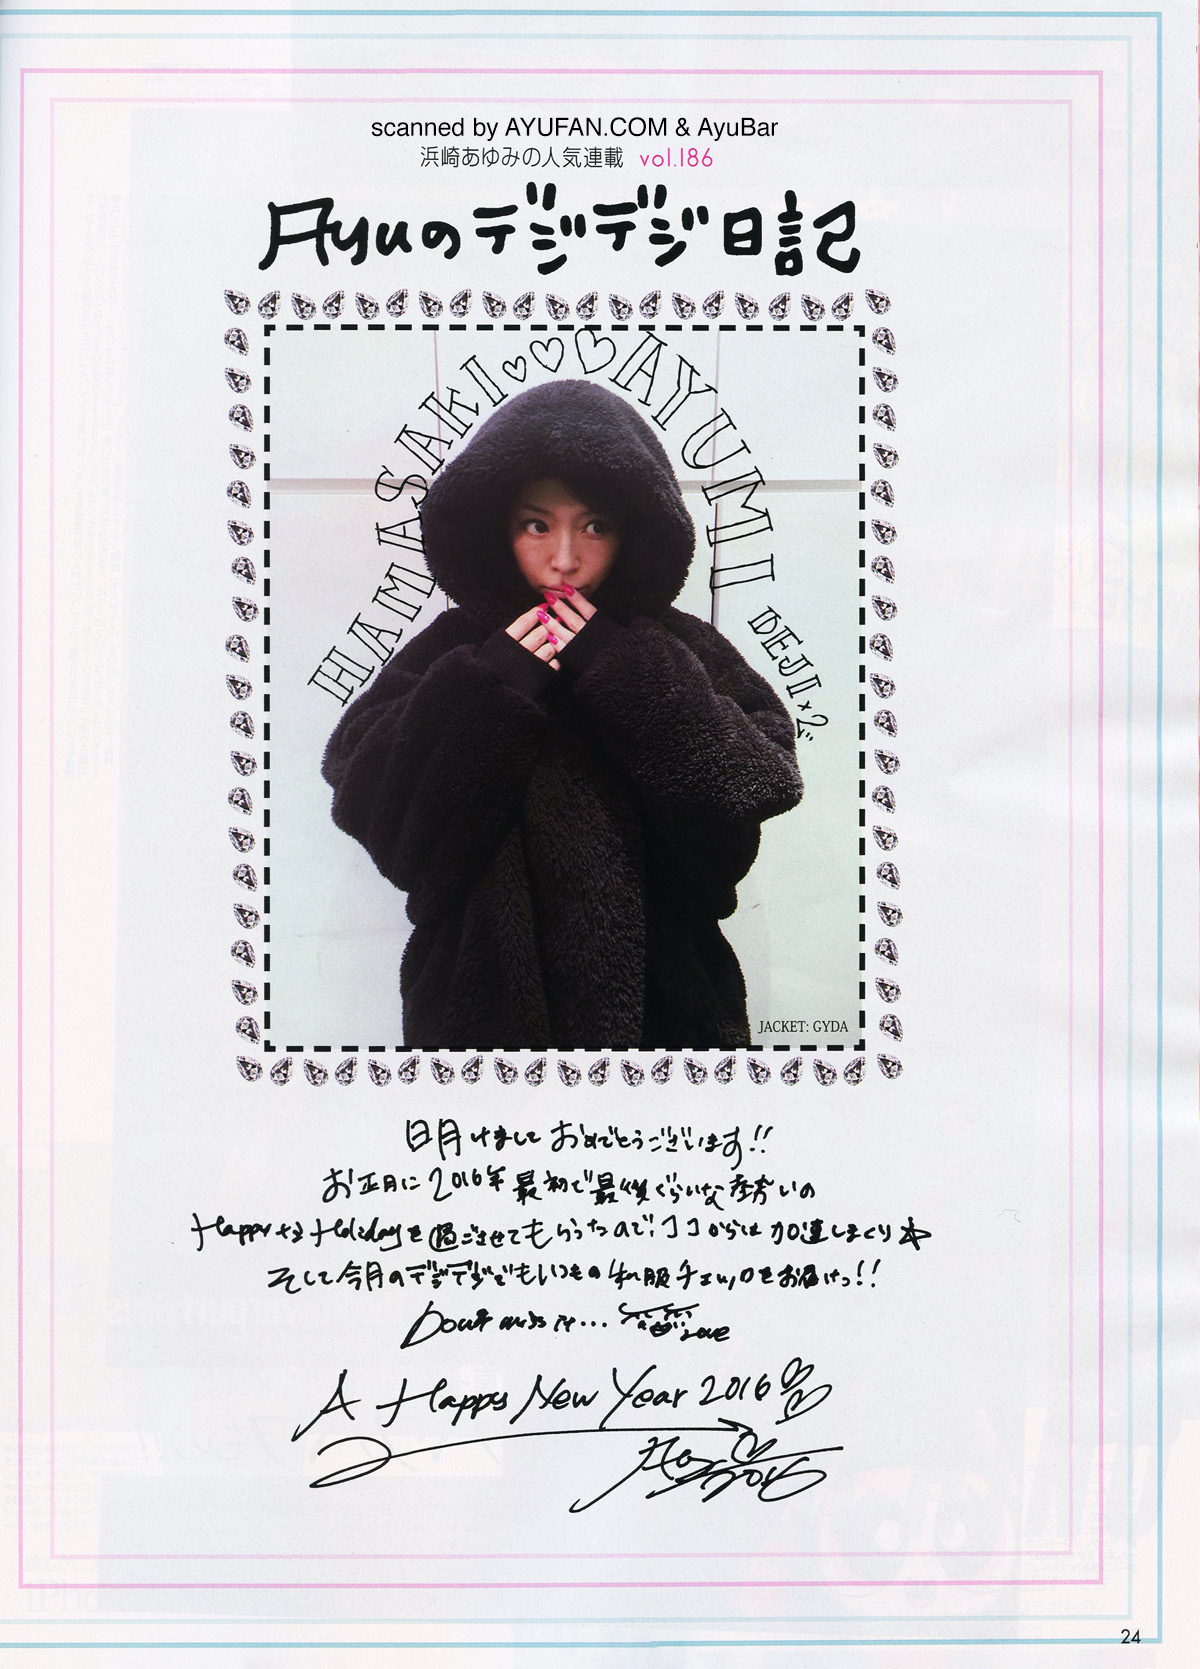 scanned by AYUFAN.COM & AyuBar
浜崎あゆみの人気連載 vol.186
Ayuのデジデジ日記
HAMASAKI♡♡♡AYUMI
DEJI×2"
JACKET: GYDA
明けましておめでとうございます!!
お正月に2016年最初で最後ぐらいな勢いの
Happy Holidayを過ごさせてもらったので、ココからは加速しまくり☆
そして今月のデジデジでもいつもの私服チェックをお届けっ!!
Don't miss it... love
A Happy New Year 2016♡♡
24